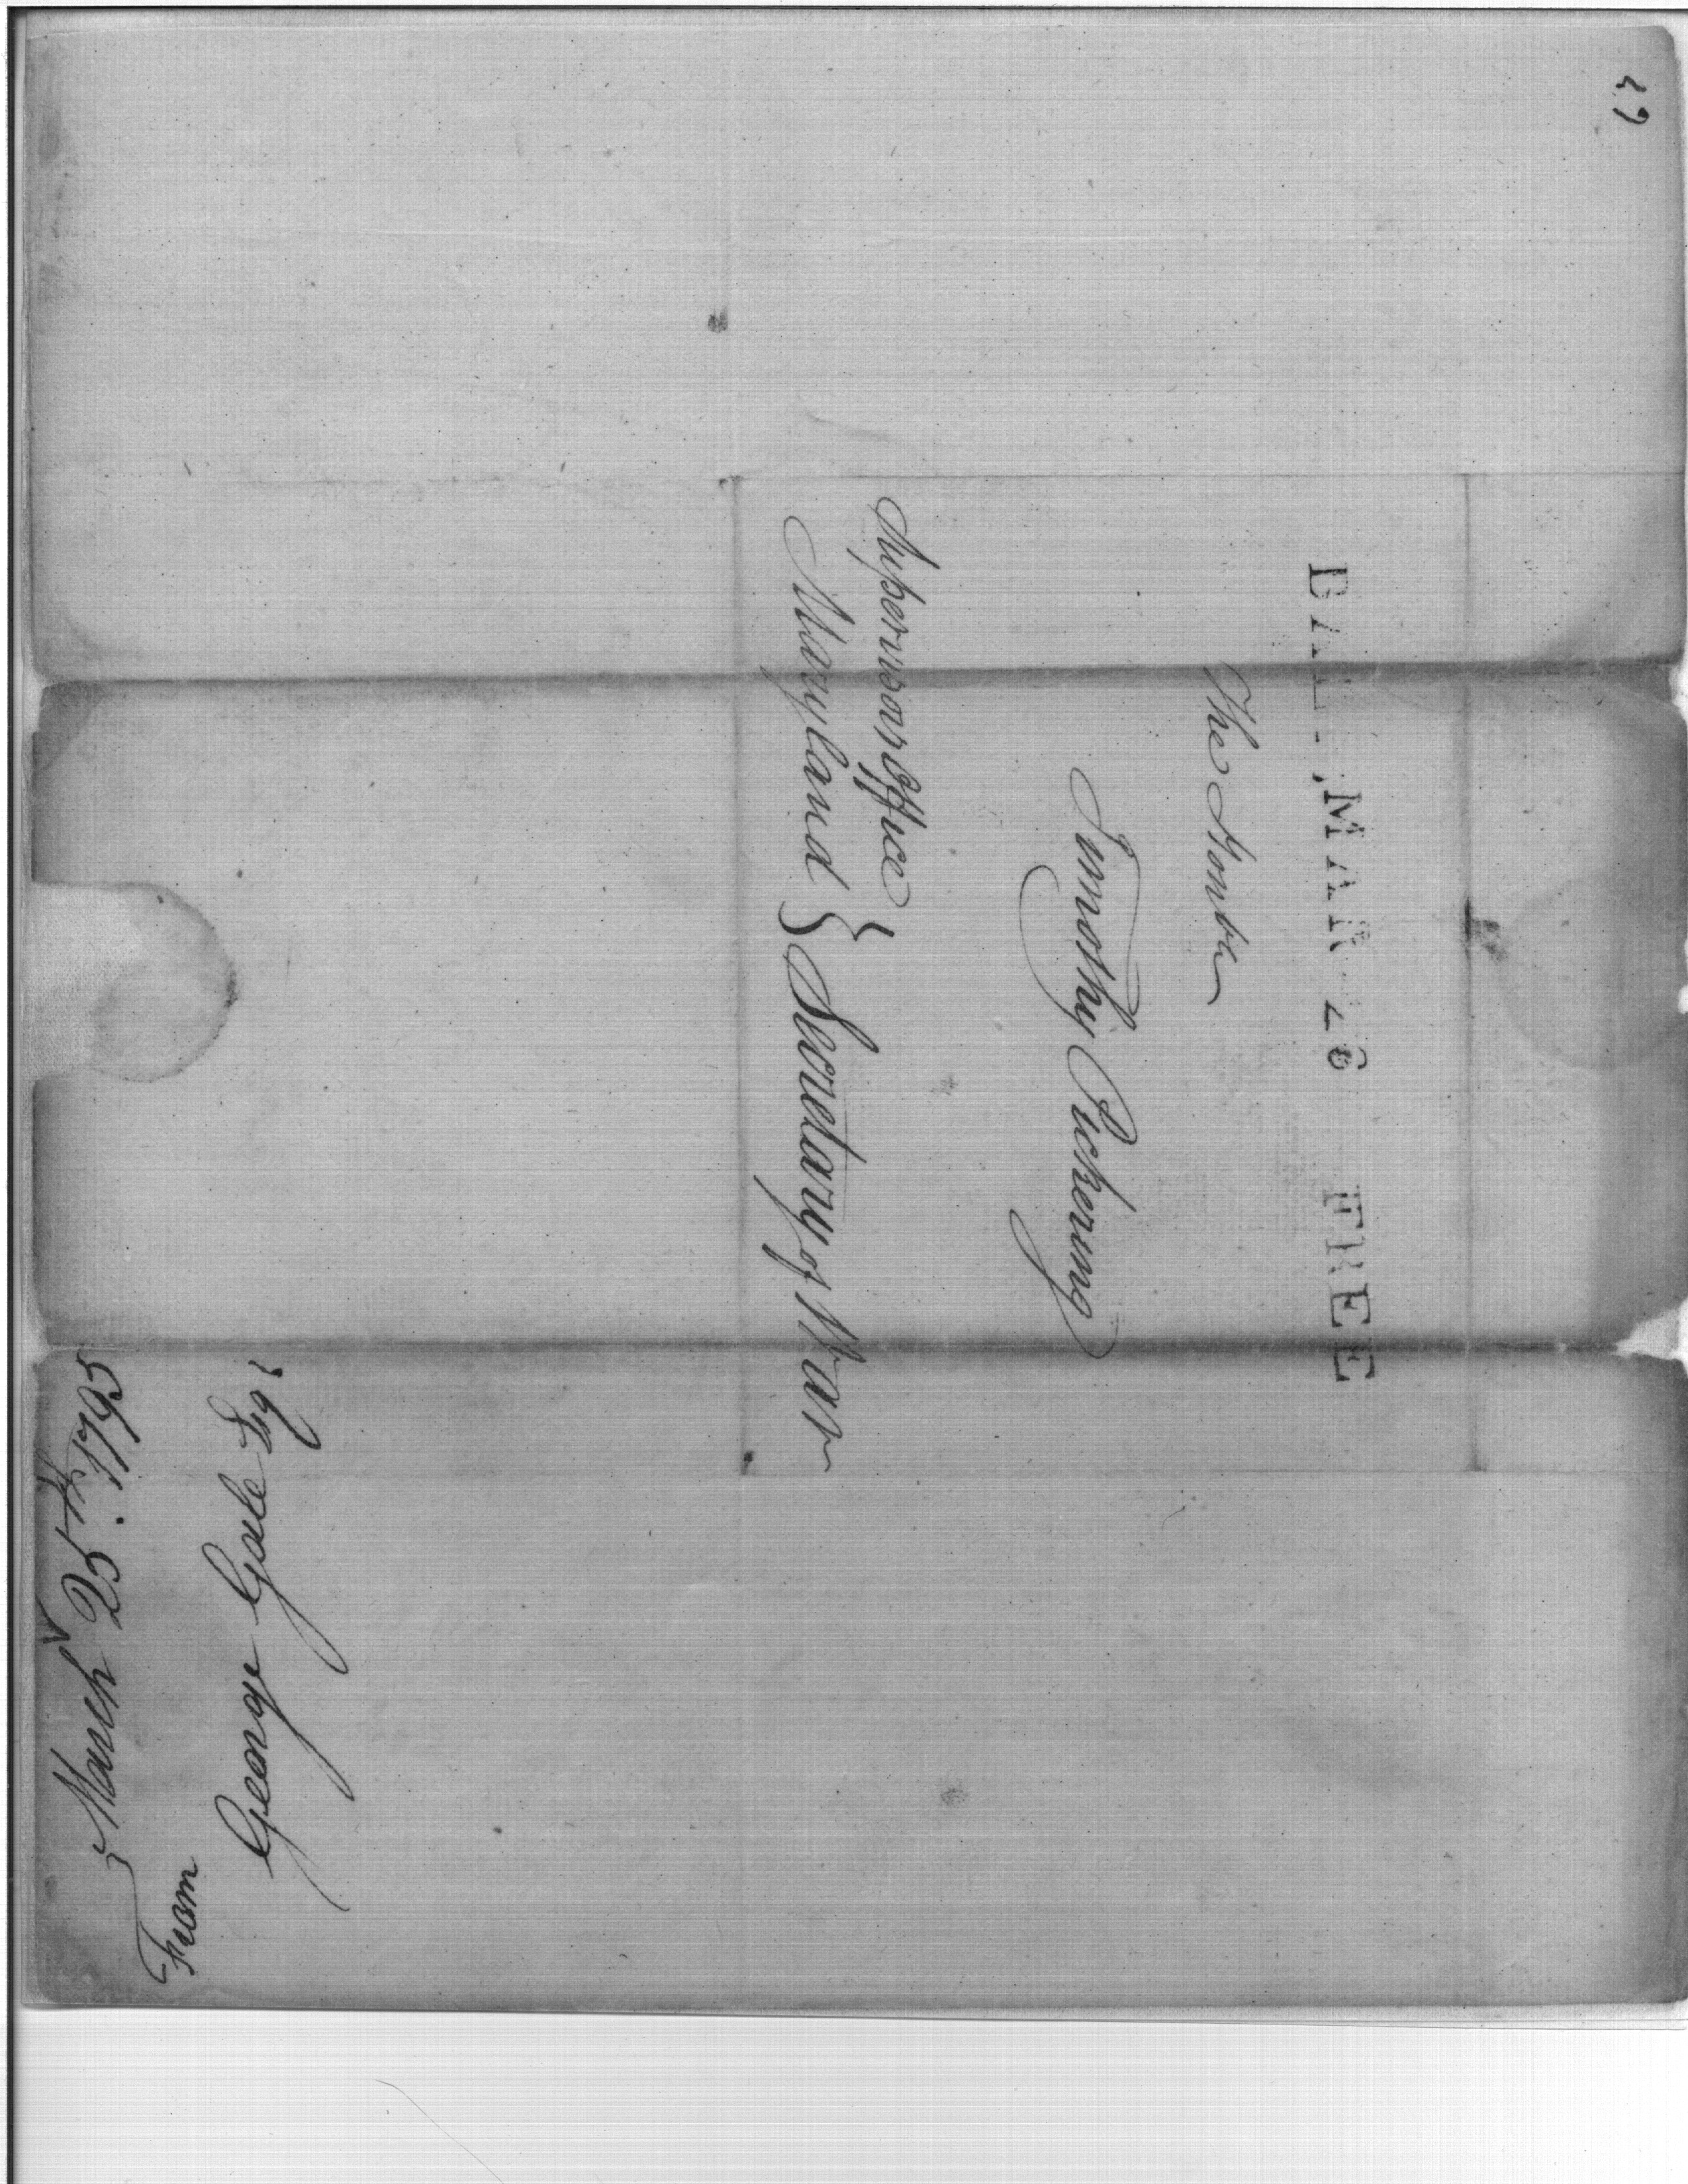 BALT, MAR 26 FREE
The Honble
Timothy Pickering
Supervisors Office
Maryland } Secretary of War
March 25th. 1795
From
George Gale Esqr